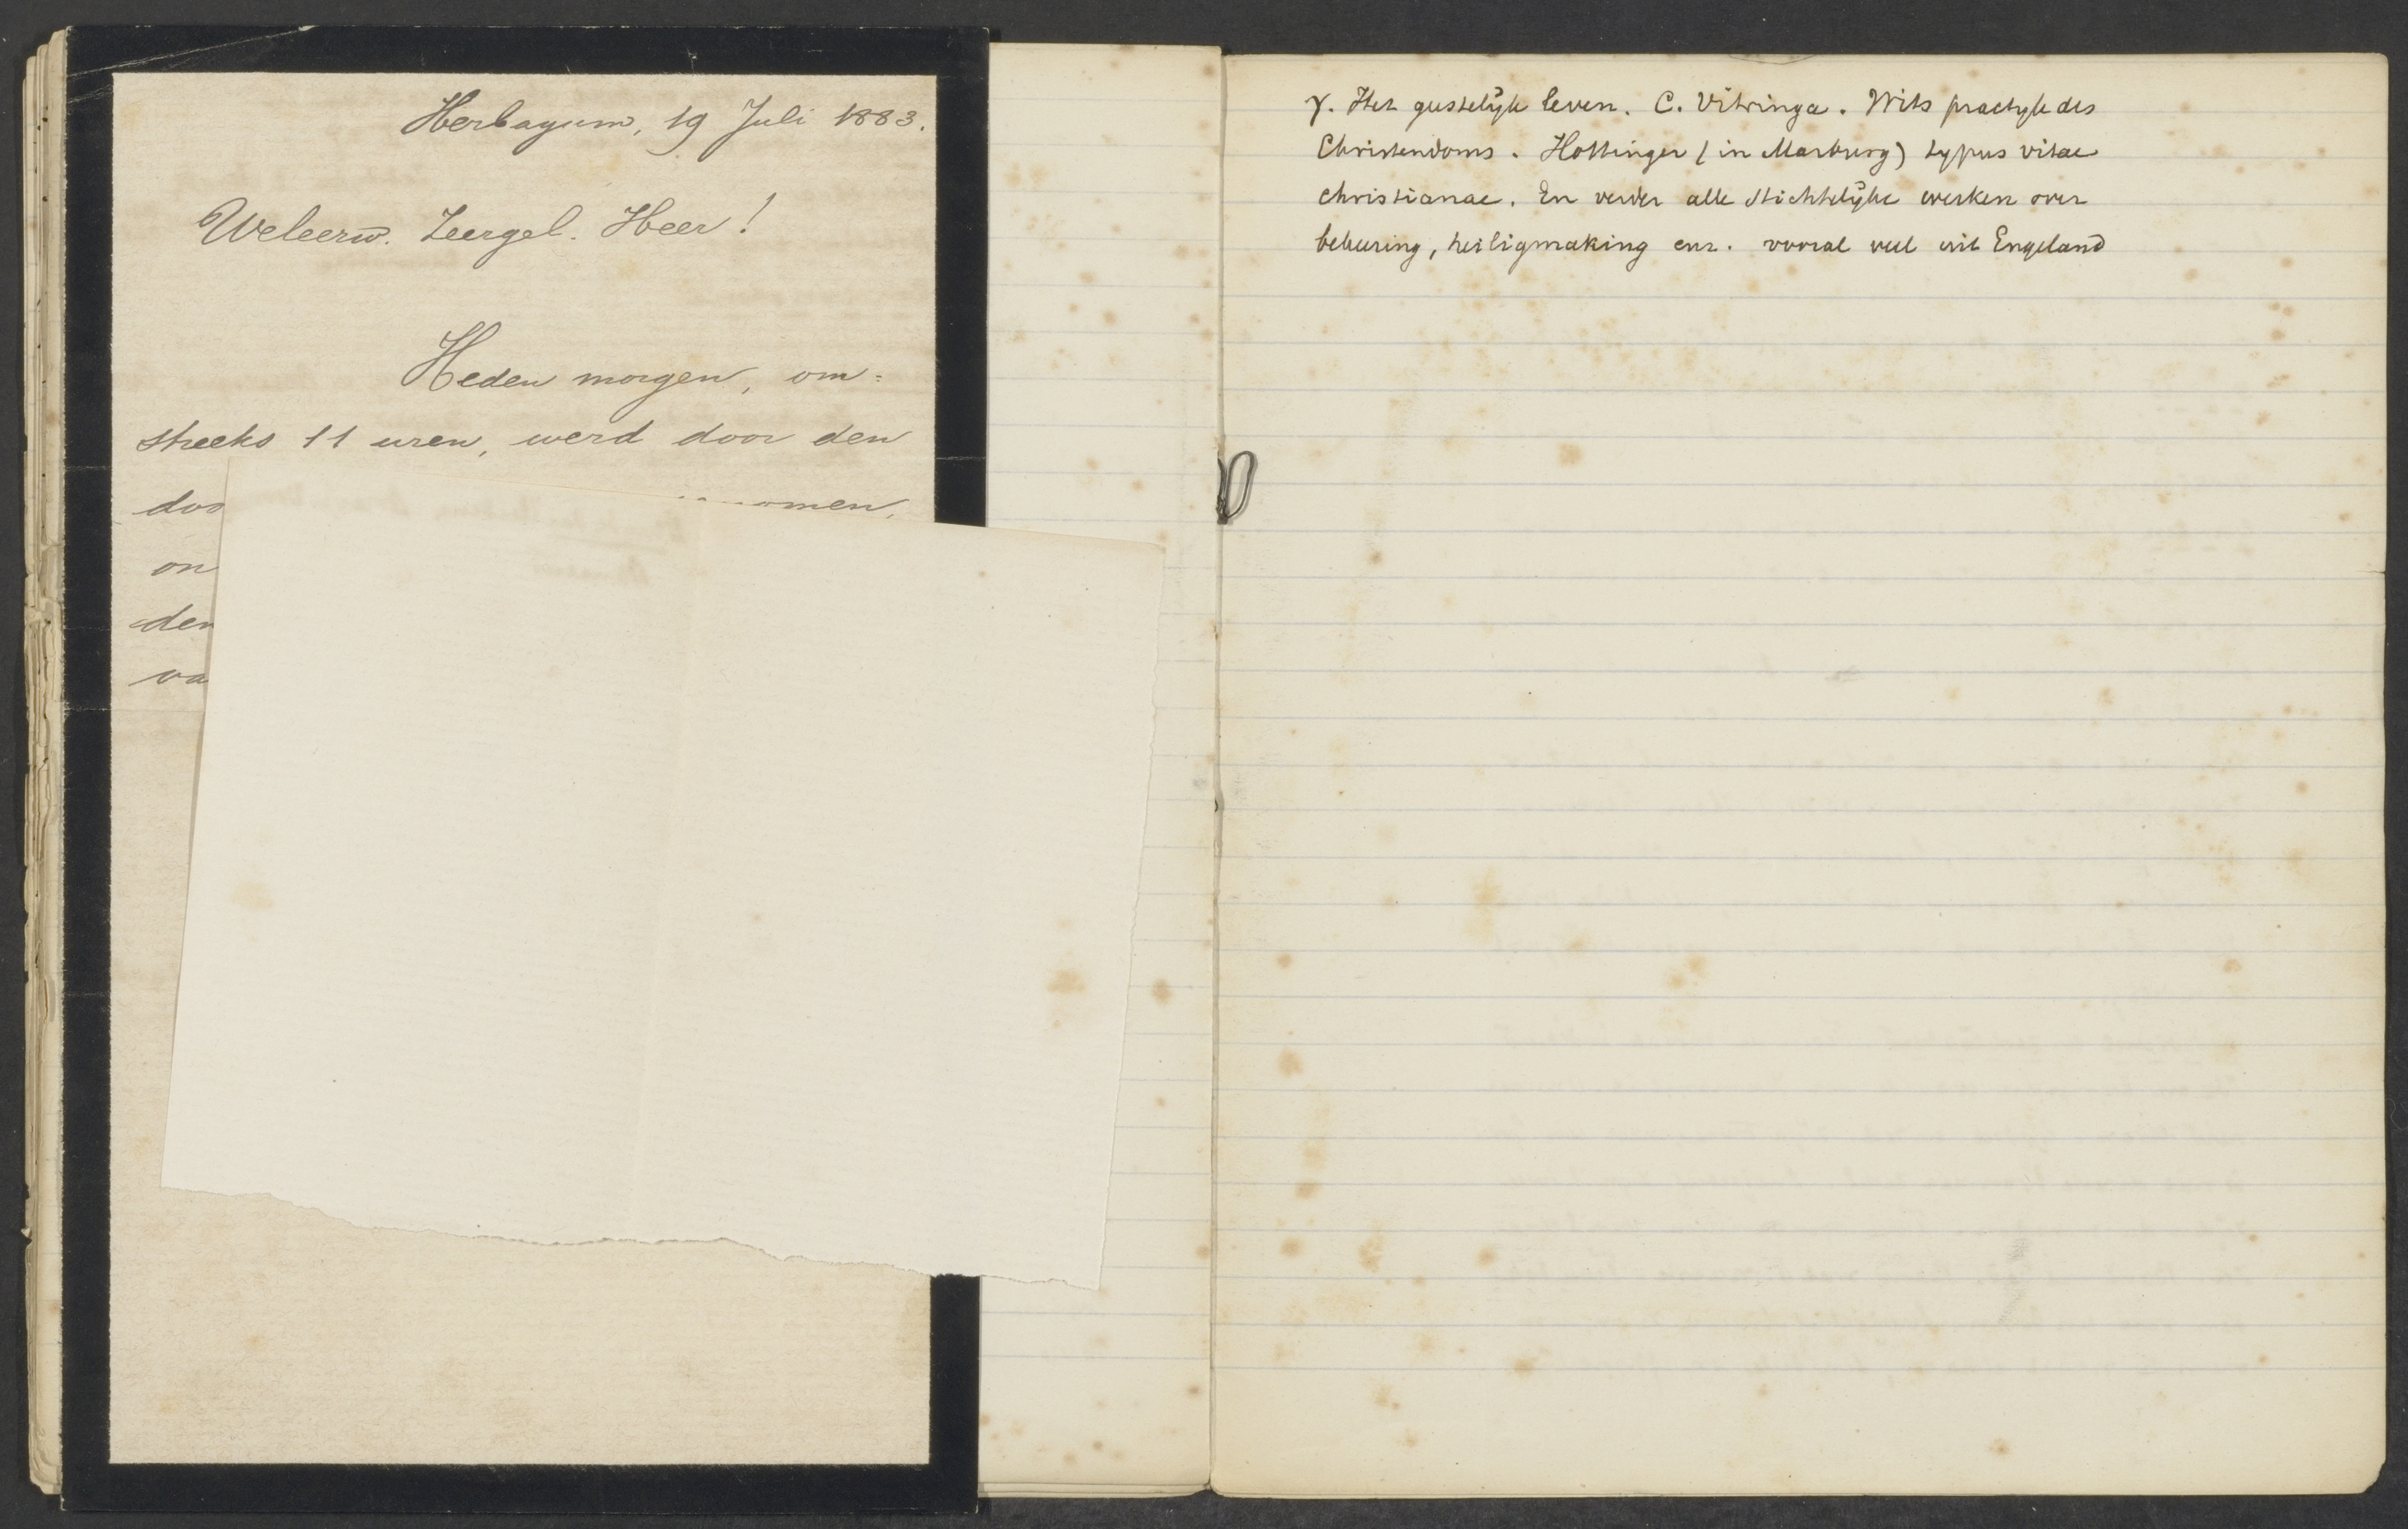 Herbayum, 19 Juli 1883.
Weleerw. Zeergel. Heer!
Heden morgen, om=
streeks 11 uren, werd door den
doo omen,
on
den
va
γ. Het geestelijk leven. C. Vitringa. Wits practijk des
Christendoms. Hottinger (in Marburg) typus vitae
christianae. En verder alle stichtelijke werken over
bekeering, heiligmaking enz. vooral veel uit Engeland